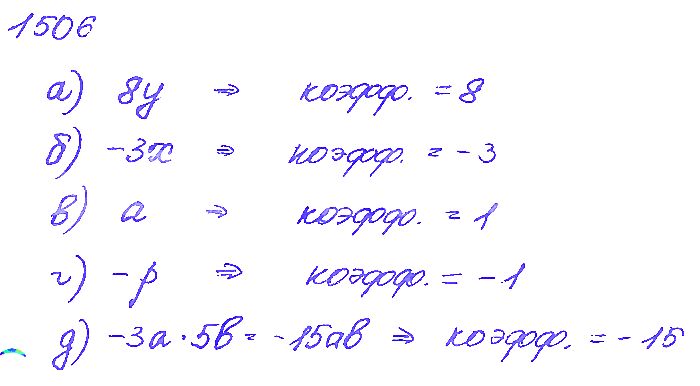 1506
а) 8y ⇒ коэфф. = 8
б) -3x ⇒ коэфф. = -3
в) a ⇒ коэфф. = 1
г) -p ⇒ коэфф. = -1
д) -3a·5b = -15ab ⇒ коэфф. = -15